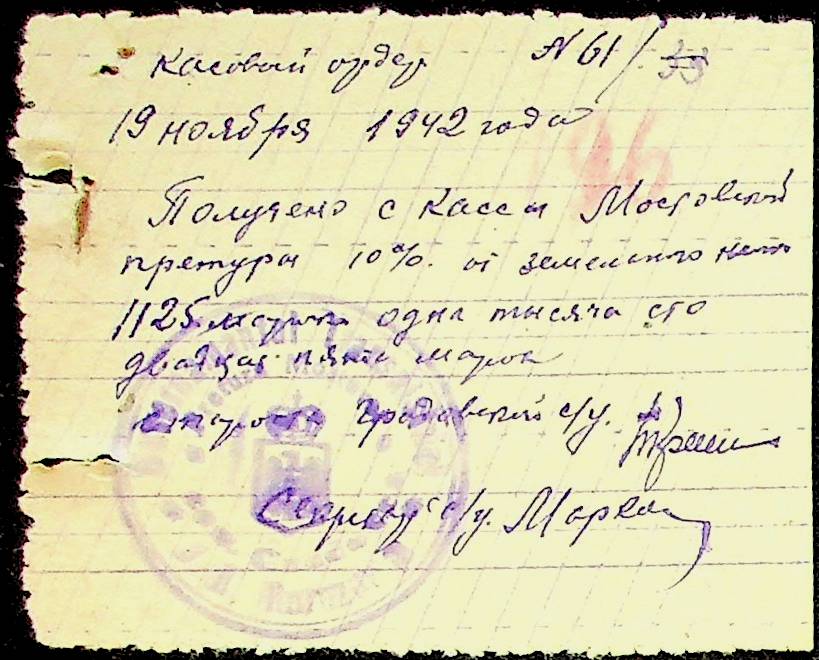 Касовый ордер N 61/33
19 ноября 1942 года
Получено с Кассы Мостовской
претуры 10%. от земельного
1125 марок одна тысяча сто
двадцат пять марок
староста Градовской с/у.
Секретарь с/у.